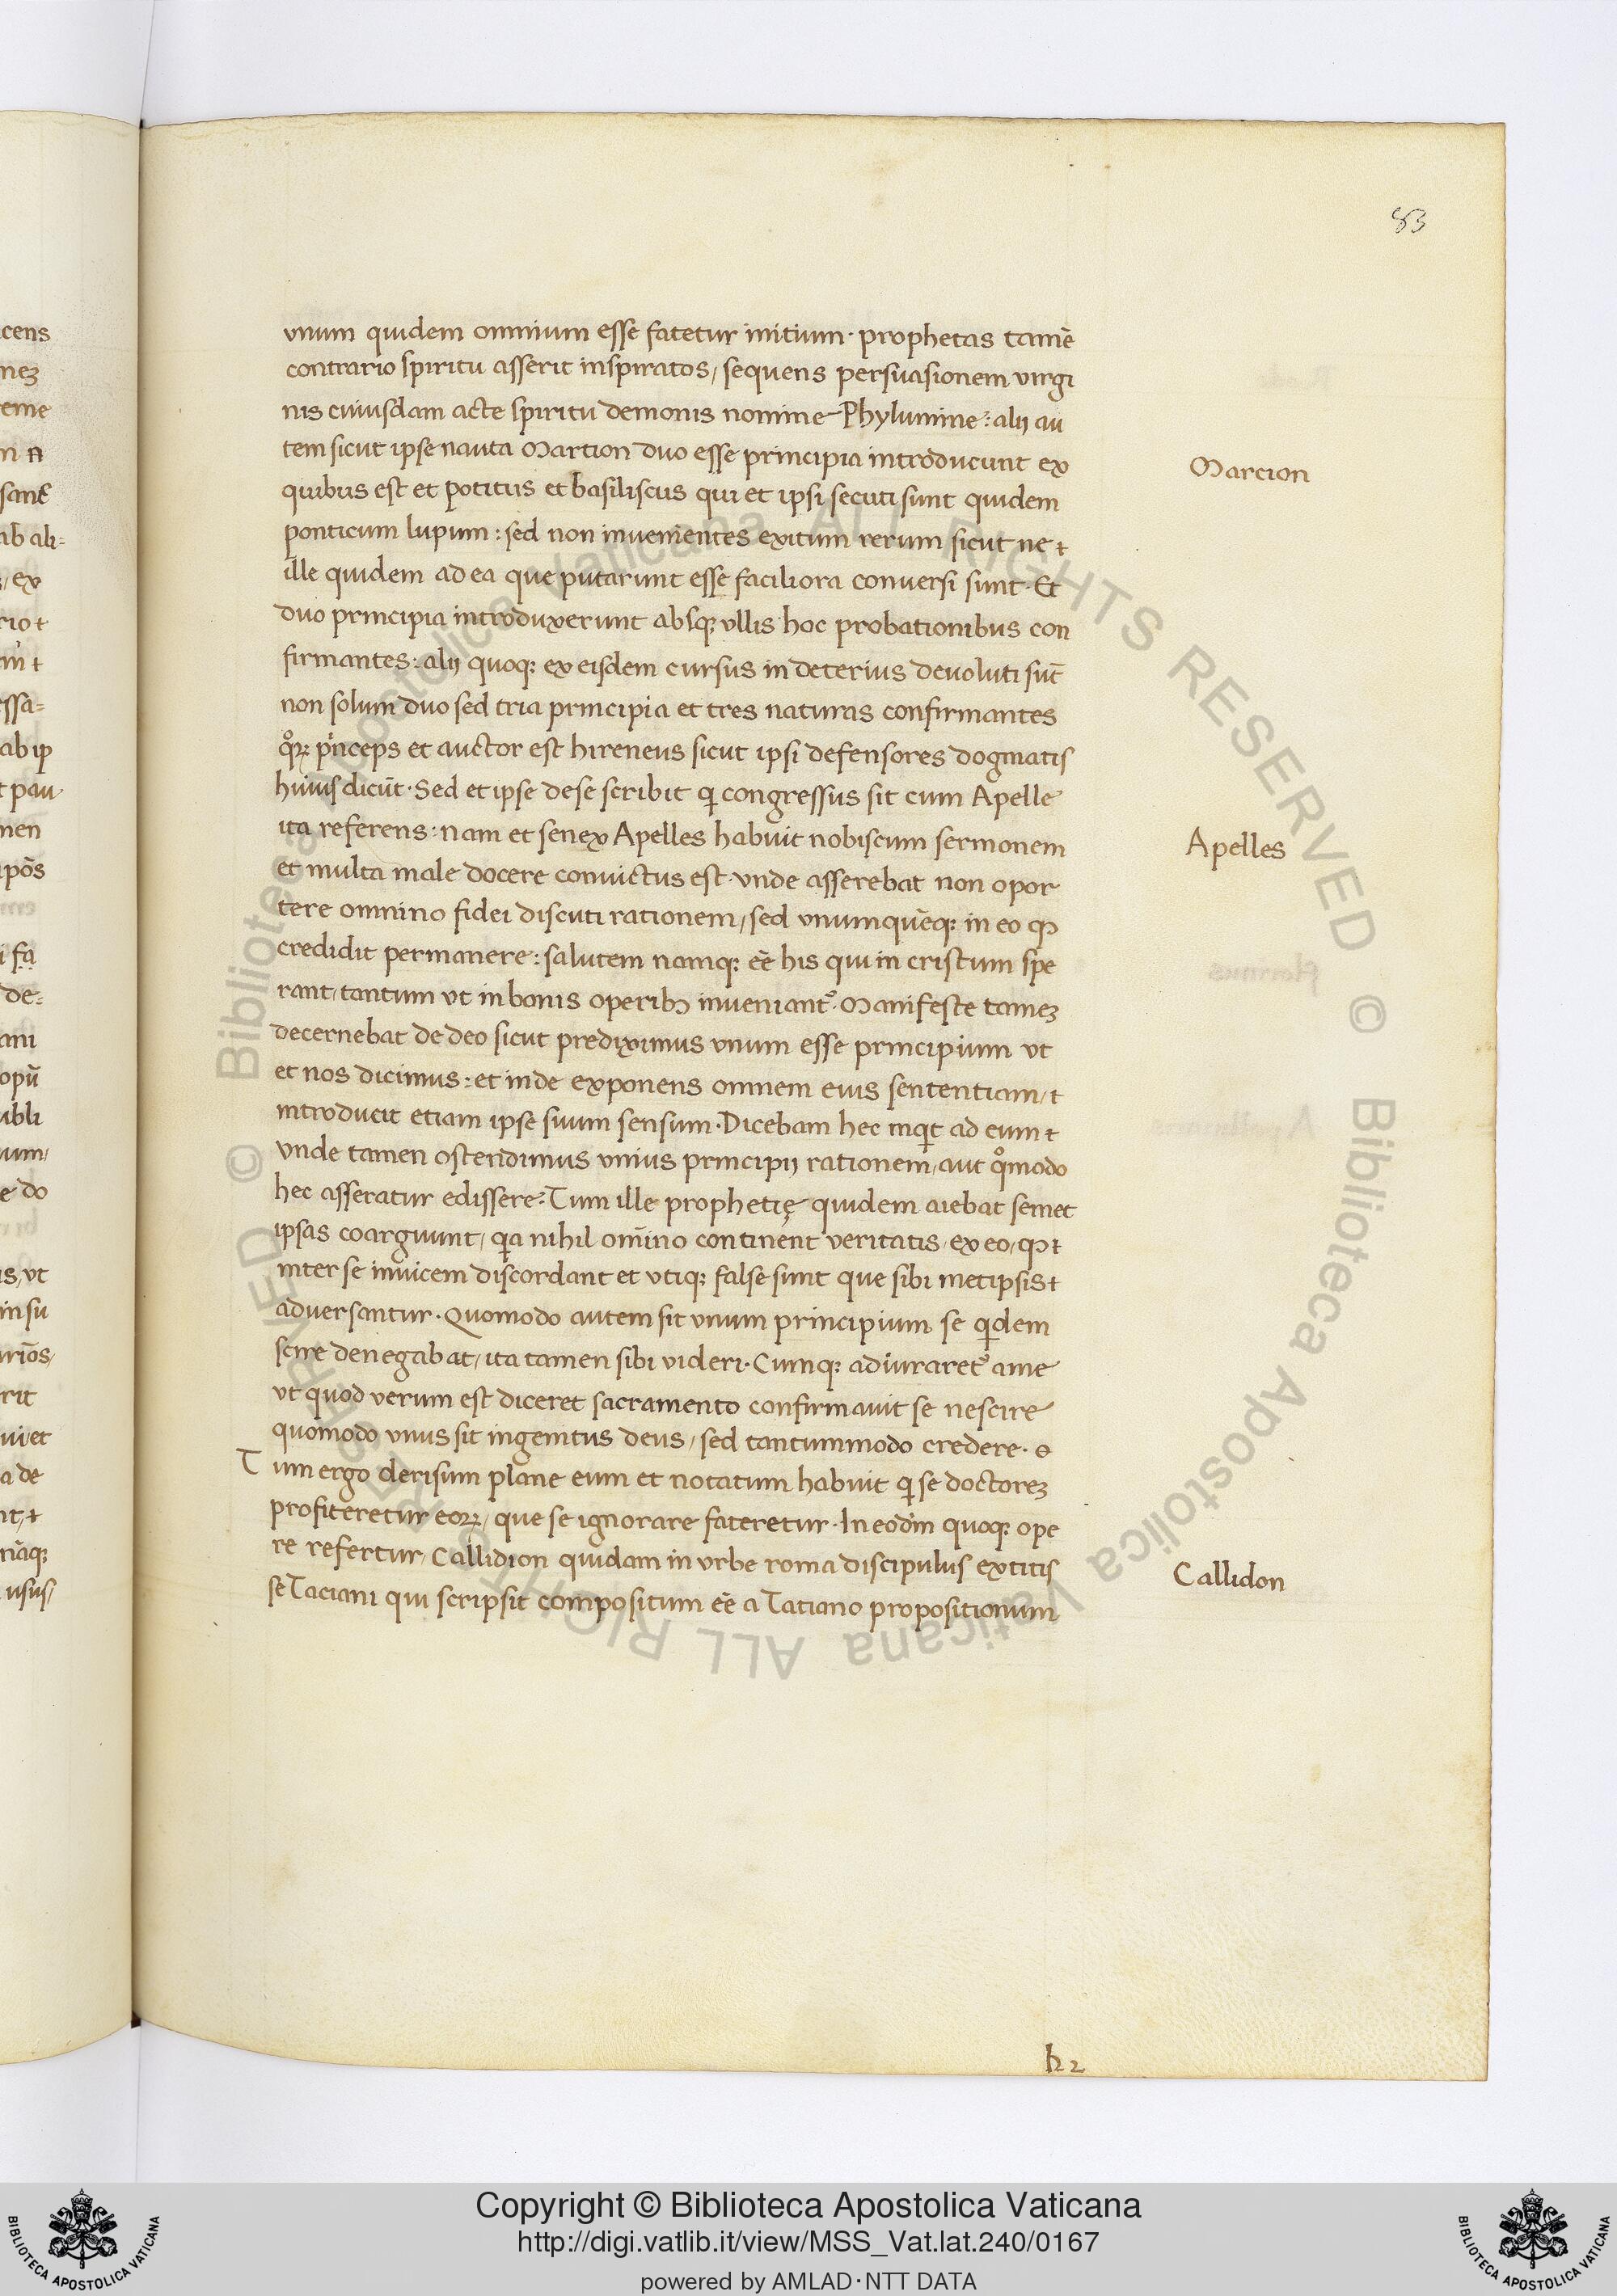 83
vnum quidem omnium esse fatetur initium· prophetas tamē
contrario spiritu asserit inspiratos/ sequens persuasionem virgi
nis cuiusdam acte spiritu demonis nomine Phylumine: alij au
tem sicut ipse nauta Martion duo esse principia introducunt ex
Marcion
quibus est et potitus et basiliscus qui et ipsi secuti sunt quidem
ponticum lupum: sed non inuenientes exitum rerum sicut ne
ille quidem ad ea que putarunt esse faciliora conuersi sunt· Et
duo principia introduxerunt absqꝫ vllis hoc probationibus con
firmantes: alij quoqꝫ ex eisdem cursus in deterius deuoluti sūt
non solum duo sed tria principia et tres naturas confirmantes
qͦꝝ pͥnceps et auctor est hireneus sicut ipsi defensores dogmatis
huius dicūt· Sed et ipse de se scribit ꝙ congressus sit cum Apelle
ita referens: nam et senex Apelles habuit nobiscum sermonem
Apelles
et multa male docere conuictus est· vnde asserebat non opor
tere omnino fidei discuti rationem/ sed vnumquēqꝫ in eo ꝙ
credidit permanere: salutem namqꝫ eē his qui in cristum spe
rant/ tantum vt in bonis operibꝫ inueniantᷣ· Manifeste tameꝫ
decernebat de deo sicut prediximus vnum esse principium vt
et nos dicimus: et inde exponens omnem eius sententiam/
introducit etiam ipse suum sensum· Dicebam hec inqͥt ad eum
vnde tamen ostendimus vnius principij rationem/ aut qͦmodo
hec asseratur edissere: Tum ille prophetię quidem aiebat semet
ipsas coarguunt/ qͥa nihil om̄ino continent veritatis/ ex eo/ ꝙ
inter se inuicem discordant et vtiqꝫ false sunt que sibi metipsis
aduersantur· Quomodo autem sit vnum principium se qͥdem
scire denegabat/ ita tamen sibi videri· Cumqꝫ adiuraretᷣ a me
vt quod verum est diceret sacramento confirmauit se nescire
quomodo vnus sit ingenitus deus/ sed tantummodo credere·
Tum ergo derisum plane eum et notatum habuit qͥ se doctoreꝫ
profiteretur eoꝝ/ que se ignorare fateretur· In eodm̄ quoqꝫ ope
re refertur/ Callidion quidam in vrbe roma discipulus extitis
Callidon
se Taciani qui scripsit compositum eē a Tatiano propositionum
h2
cens
neꝫ
eme
ab ali=
ex
ssa=
ab ip
pau
men
pōs
fa
de=
ani
opū
ubli
uum/
e do
vt
in su
rit
ui et
a de
usus/
© Biblioteca Apostolica Vaticana ALL RIGHTS RESERVED © Biblioteca Apostolica Vaticana ALL RIGHTS RESERVED
Copyright © Biblioteca Apostolica Vaticana
http://digi.vatlib.it/view/MSS_Vat.lat.240/0167
powered by AMLAD·NTT DATA
BIBLIOTECA APOSTOLICA VATICANA
BIBLIOTECA APOSTOLICA VATICANA